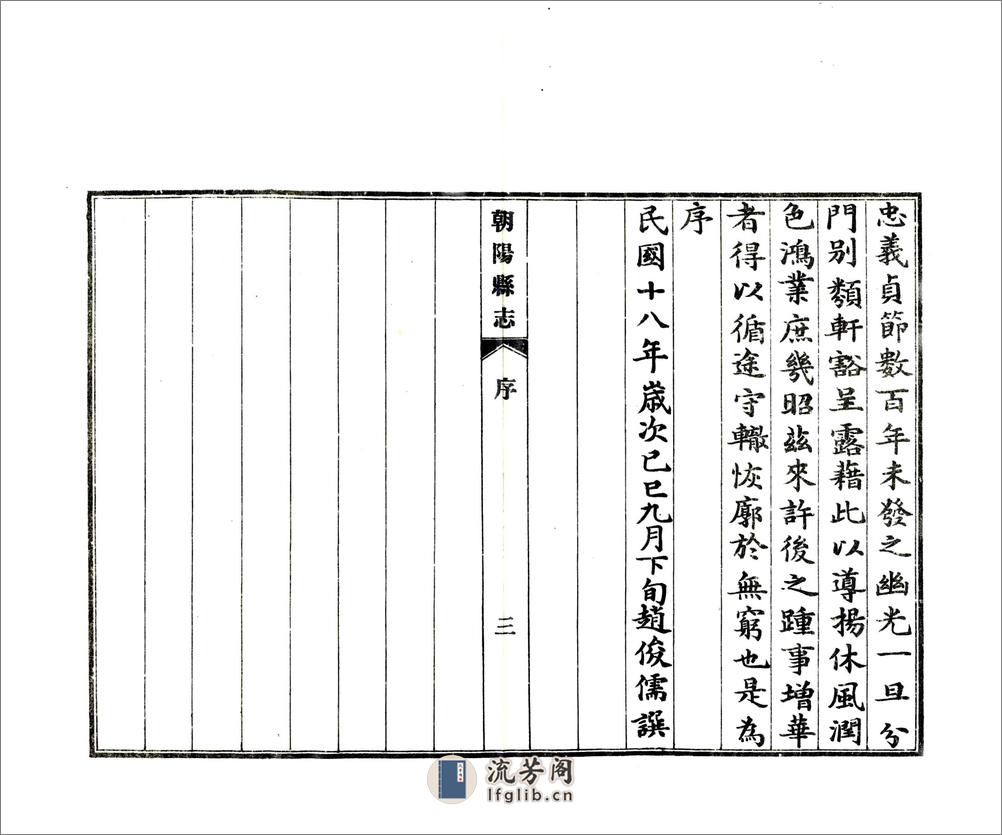 忠義貞節數百年未發之幽光一旦分
門別類軒豁呈露藉此以導揚休風潤
色鴻業庶幾昭茲來許後之踵事增華
者得以循途守轍恢廓於無窮也是為
序
民國十八年歲次己巳九月下旬趙俊儒譔
朝陽縣志
序
三
流芳阁
lfglib.cn